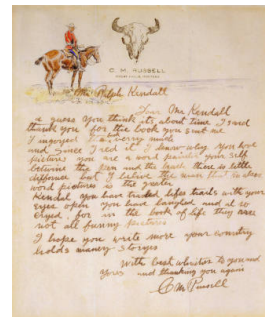 C. M. RUSSELL
Mr Ralph Kendall
Dear Mr Kendall
I guess you think its about time I said
thank you for the book you sent me
I injoyed every word
and since I read it I know why you have
pictures you are a word painter your self
betwine the pen and the brush there is little
diffornce but I belive the man that makes
word pictures is the greater
Kendal you have traded lifes trails with your
eyes open you have laughed and also
cryed for in the book of life they are
not all funny pictures
I hope you write more your country
holds maney storyes
With best whishes to you and
yores and thanking you again
C M Russell